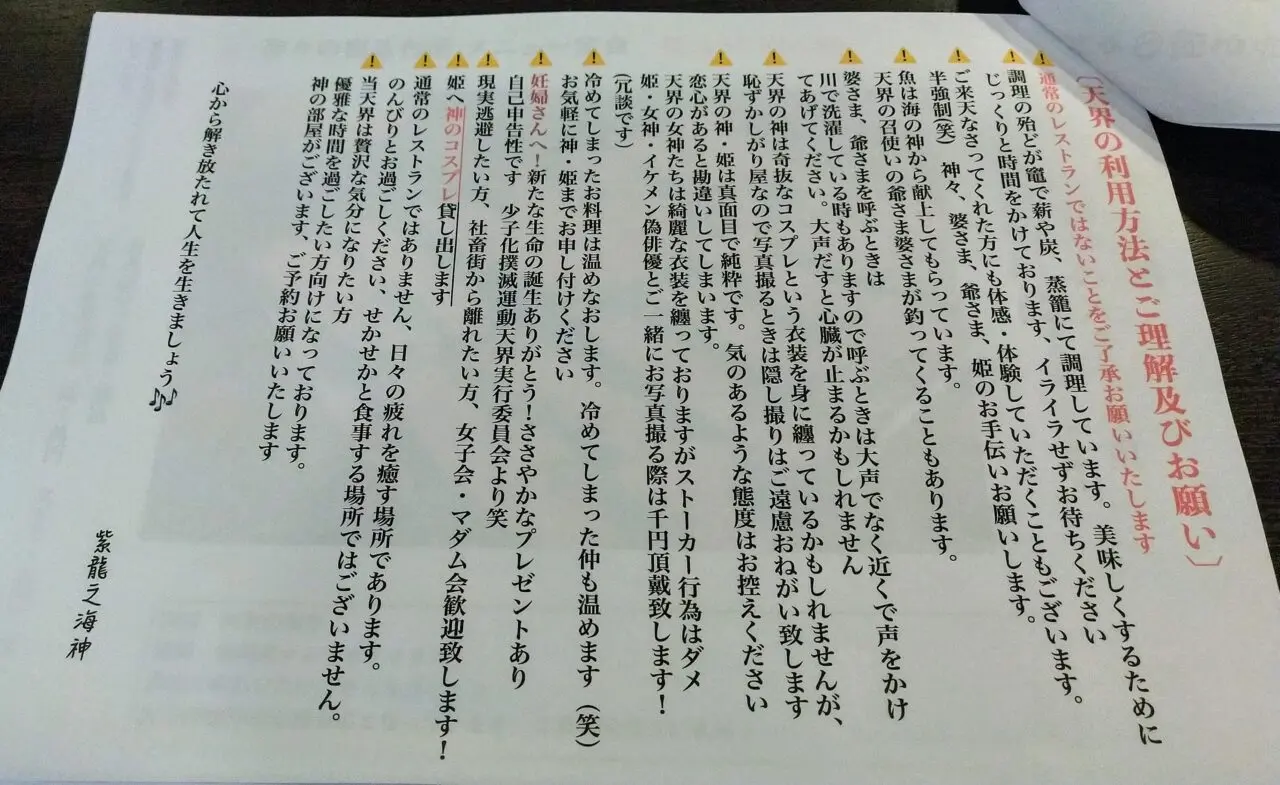 〔天界の利用方法とご理解及びお願い〕
⚠通常のレストランではないことをご了承お願いいたします
⚠調理の殆どが竈で薪や炭、蒸籠にて調理しています。美味しくするために
じっくりと時間をかけております、イライラせずお待ちください
⚠ご来天なさってくれた方にも体感・体験していただくこともございます。
半強制(笑) 神々、婆さま、爺さま、姫のお手伝いお願いします。
⚠魚は海の神から献上してもらっています。
天界の召使いの爺さま婆さまが釣ってくることもあります。
⚠婆さま、爺さまを呼ぶときは
川で洗濯している時もありますので呼ぶときは大声でなく近くで声をかけ
てあげてください。大声だすと心臓が止まるかもしれません
⚠天界の神は奇抜なコスプレという衣装を身に纏っているかもしれませんが、
恥ずかしがり屋なので写真撮るときは隠し撮りはご遠慮おねがい致します
⚠天界の神・姫は真面目で純粋です。気のあるような態度はお控えください
恋心があると勘違いしてしまいます。
天界の女神たちは綺麗な衣装を纏っておりますがストーカー行為はダメ
姫・女神・イケメン偽俳優とご一緒にお写真撮る際は千円頂戴致します!
(冗談です)
⚠冷めてしまったお料理は温めなおします。冷めてしまった仲も温めます(笑)
お気軽に神・姫までお申し付けください
⚠妊婦さんへ!新たな生命の誕生ありがとう!ささやかなプレゼントあり
自己申告性です 少子化撲滅運動天界実行委員会より笑
⚠現実逃避したい方、社畜街から離れたい方、女子会・マダム会歓迎致します!
⚠姫へ神のコスプレ貸し出します
⚠通常のレストランではありません、日々の疲れを癒す場所であります。
のんびりとお過ごしください、せかせかと食事する場所ではございません。
⚠当天界は贅沢な気分になりたい方
優雅な時間を過ごしたい方向けになっております。
神の部屋がございます、ご予約お願いいたします
心から解き放たれて人生を生きましょう🎶
紫龍之海神